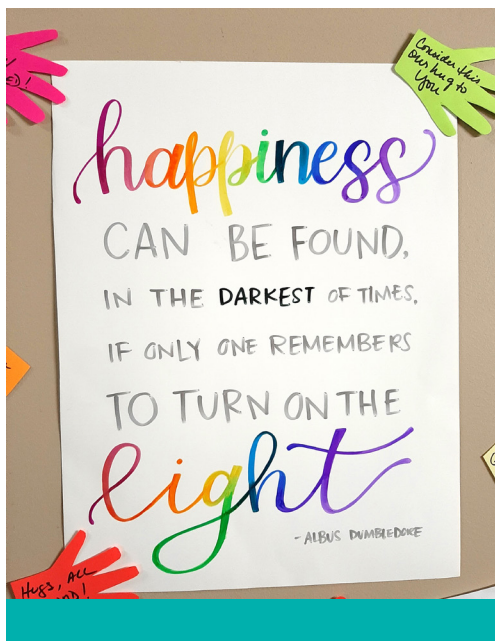 Consider this
our hug to
you
happiness
CAN BE FOUND,
IN THE DARKEST OF TIMES,
IF ONLY ONE REMEMBERS
TO TURN ON THE
light
- ALBUS DUMBLEDORE
Hugs, ALL